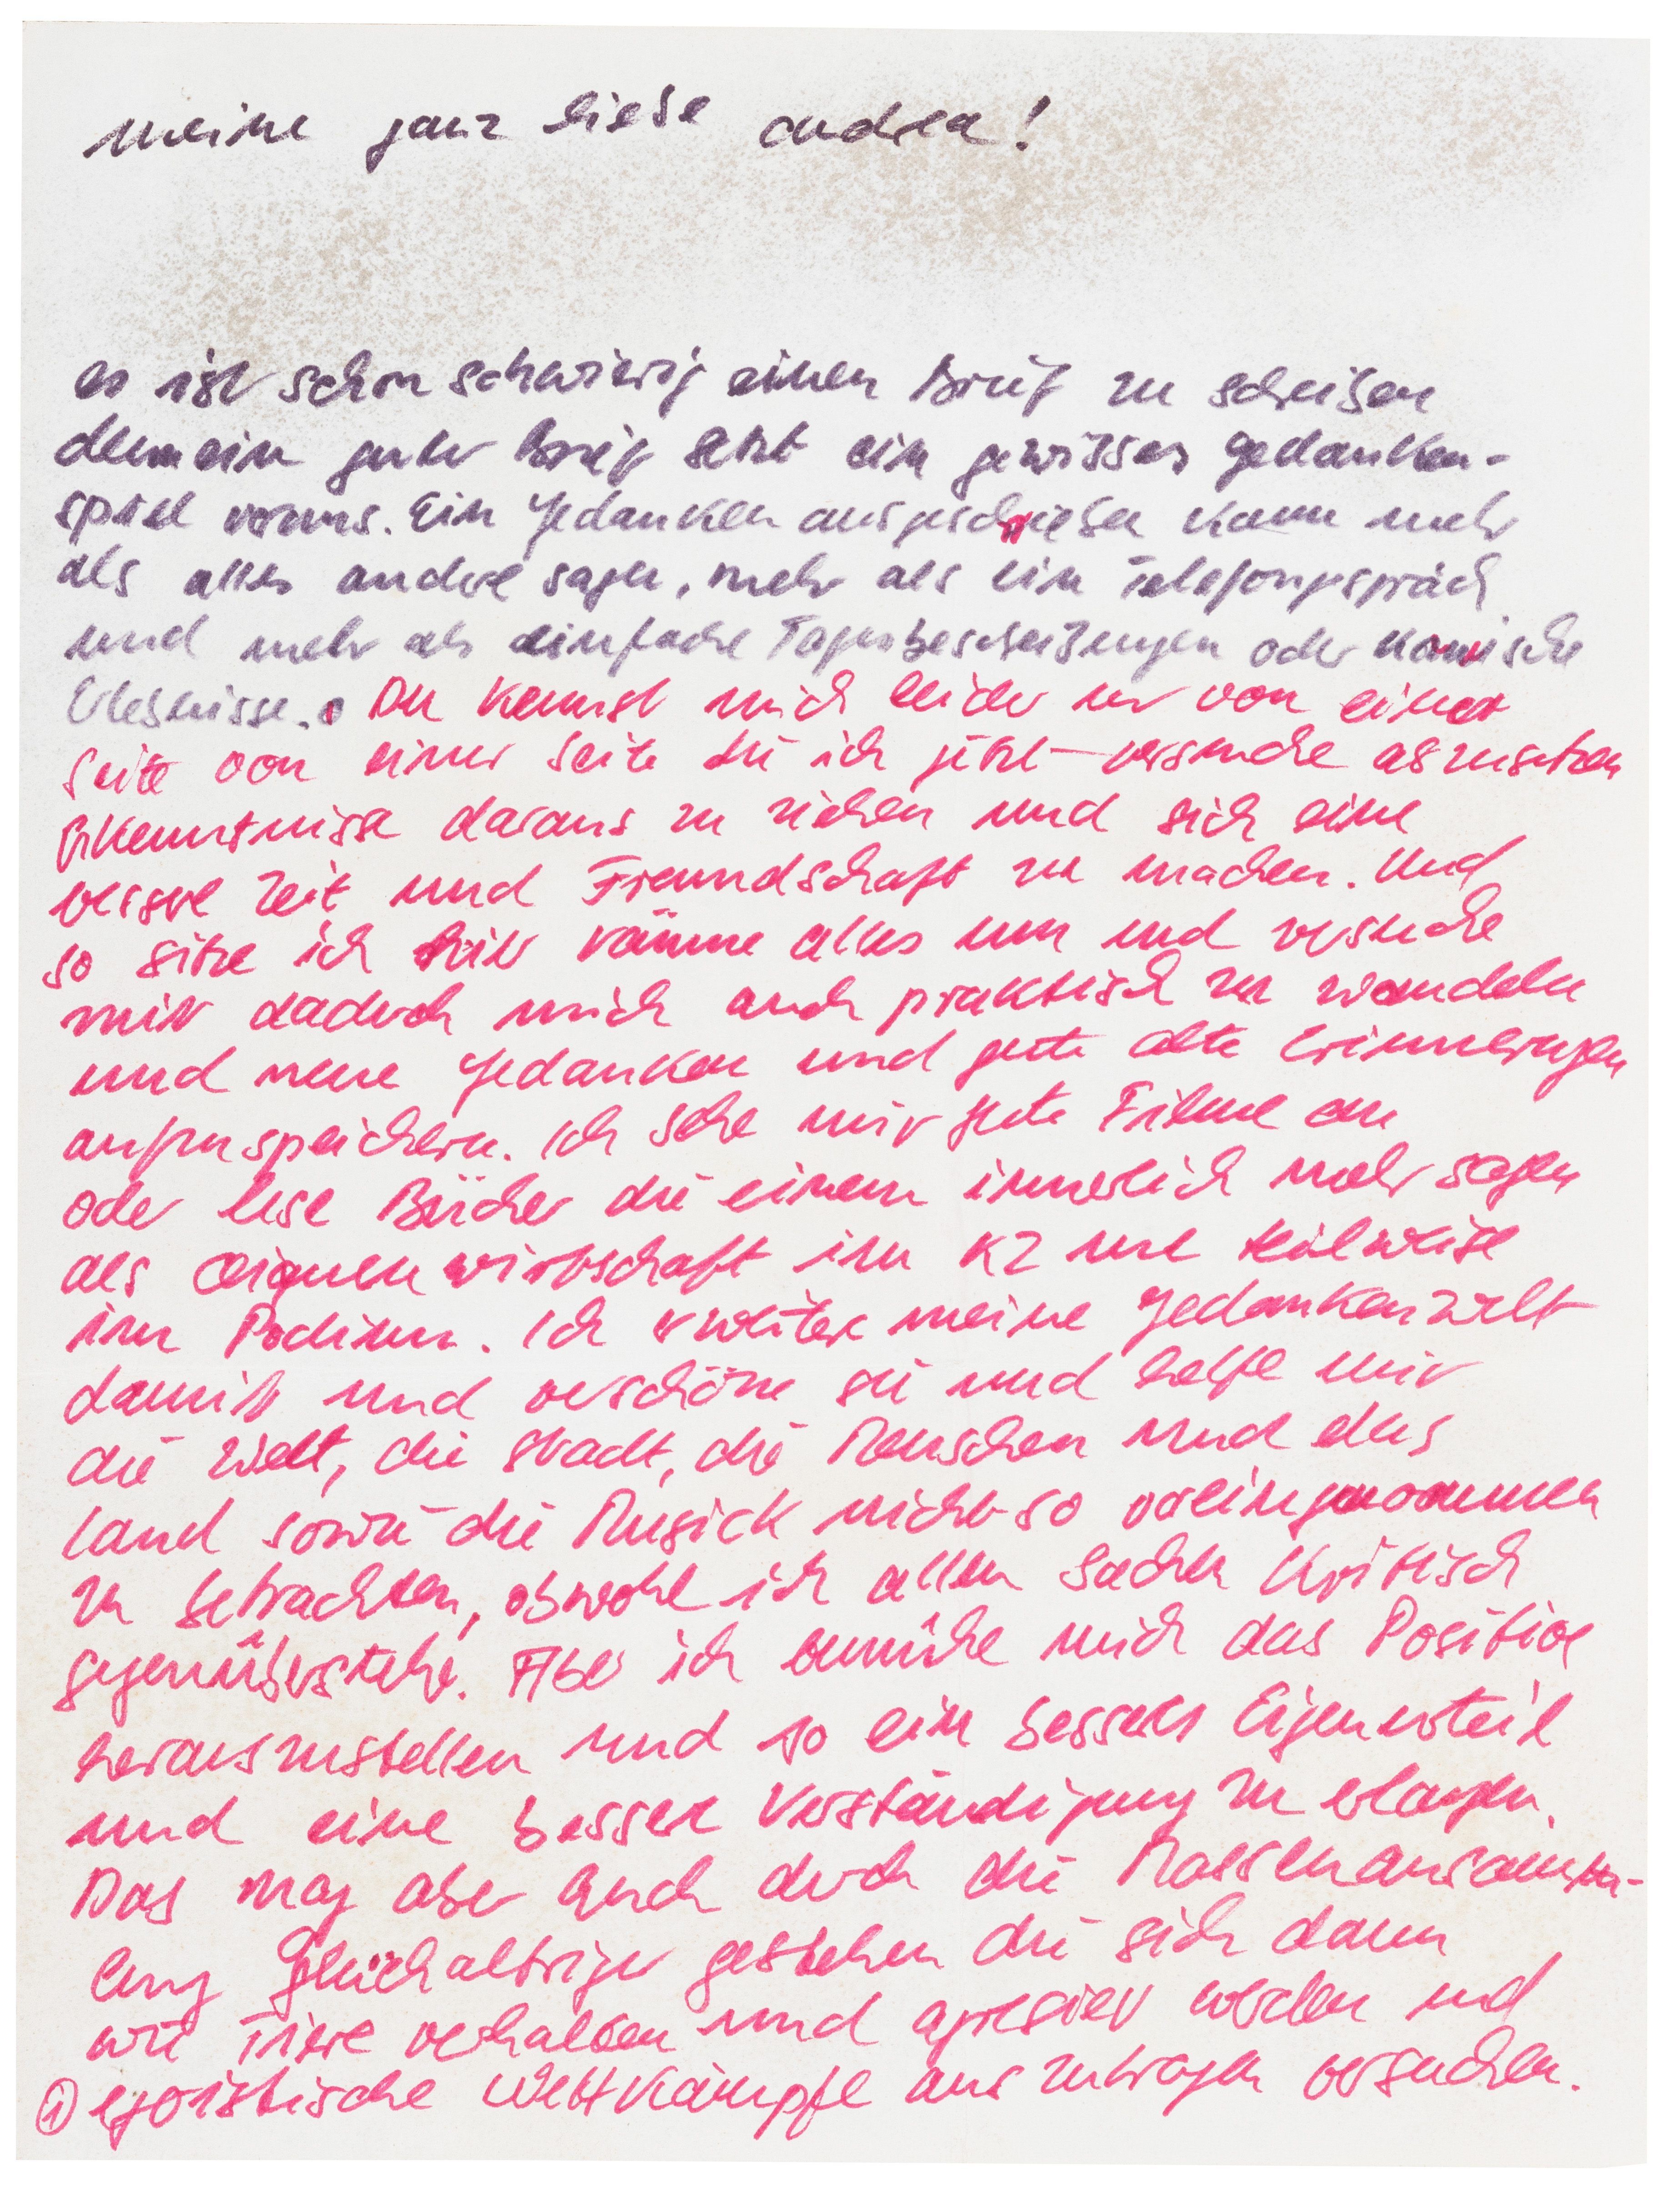 meine ganz liebe andrea!
es ist schon schwierig einen Brief zu schreiben
denn ein guter Brief setzt ein gewisses gedanken-
spiel voraus. Ein Gedanken ausgeschrieben kann mehr
als alles andere sagen, mehr als ein Telefongespräch
und mehr als einfache Tagesbeschreibungen oder komische
Erlebnisse. Du kennst mich leider nur von einer
Seite von einer Seite die ich jetzt versuche abzusetzen
Erkenntnisse daraus zu ziehen und sich eine
bessere Zeit und Freundschaft zu machen. Und
so sitze ich hier räume alles um und versuche
mir dadurch mich auch praktisch zu wandeln
und neue Gedanken und gute alte Erinnerungen
aufzuspeichern. Ich sehe mir gute Filme an
oder lese Bücher die einem innerlich mehr sagen
als wirtschaft im KZ und teilweise
im Podium. Ich erweitere meine Gedankenwelt
damit und verschöne sie und helfe mir
die Welt, die Stadt, die Menschen und das
Land sowie die Musick nicht so voreingenommen
zu betrachten, obwohl ich allen Sachen kritisch
gegenüberstehe. Aber ich bemühe mich das Positive
herauszustellen und so ein besseres Eigenurteil
und eine bessere Verständigung zu erlangen.
Das mag aber auch durch die Massenansamm-
lung Gleichaltriger gestehen die sich dann
wie Tiere verhalten und agresiev werden und
① egoistische Wettkämpfe auszutragen versuchen.